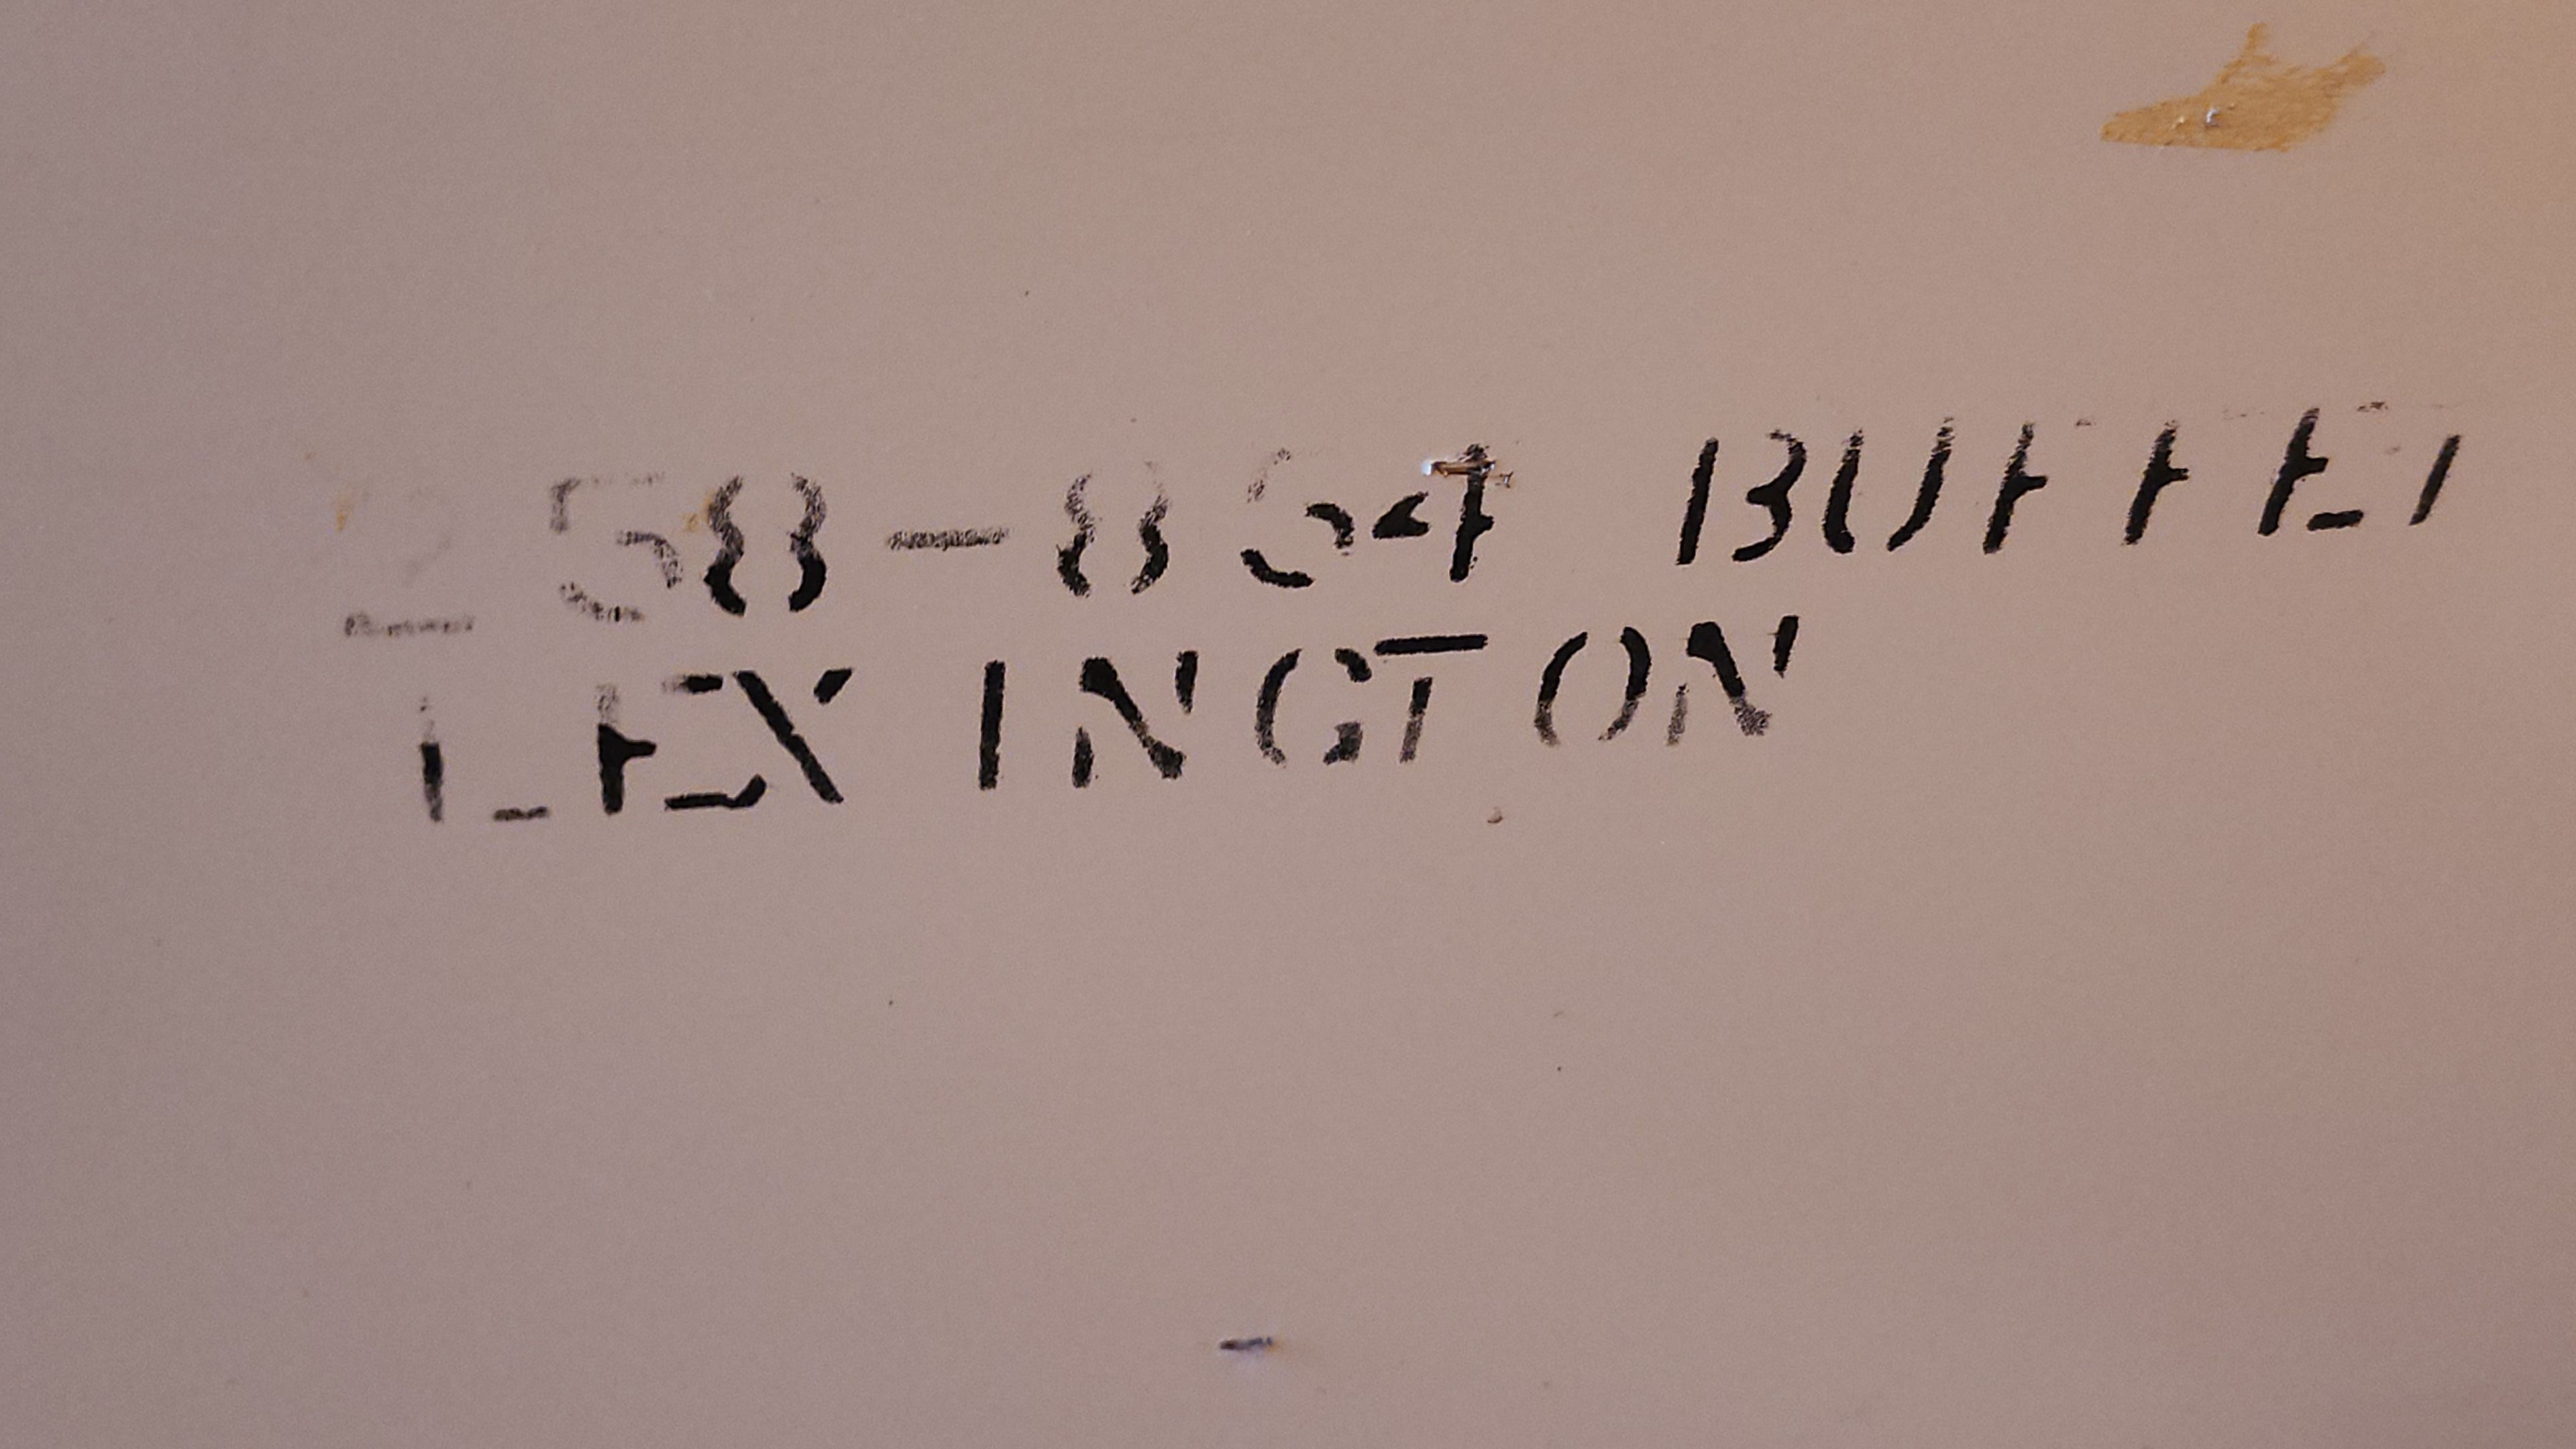 258-854 BUFFET
LEXINGTON